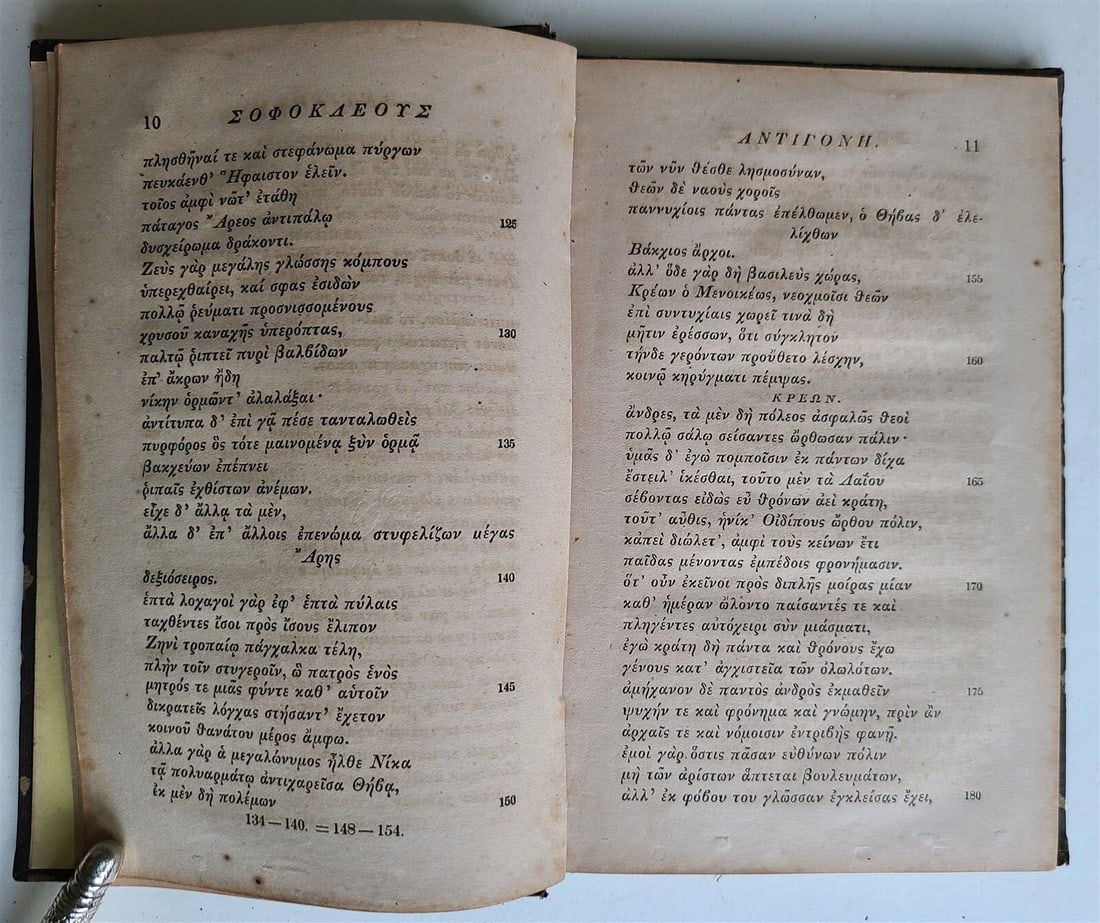 10
ΣΟΦΟΚΛΕΟΥΣ
πλησθῆναί τε καὶ στεφάνωμα πύργων
πευκάενθ' Ἥφαιστον ἑλεῖν.
τοῖος ἀμφὶ νῶτ' ἐτάθη
πάταγος Ἄρεος ἀντιπάλῳ 125
δυσχείρωμα δράκοντι.
Ζεὺς γὰρ μεγάλης γλώσσης κόμπους
ὑπερεχθαίρει, καί σφας ἐσιδὼν
πολλῷ ῥεύματι προσνισσομένους
χρυσοῦ καναχῆς ὑπερόπτας, 130
παλτῷ ῥιπτεῖ πυρὶ βαλβίδων
ἐπ' ἄκρων ἤδη
νίκην ὁρμῶντ' ἀλαλάξαι·
ἀντίτυπα δ' ἐπὶ γᾷ πέσε τανταλωθεὶς
πυρφόρος ὃς τότε μαινομένᾳ ξὺν ὁρμᾷ 135
βακχεύων ἐπέπνει
ῥιπαῖς ἐχθίστων ἀνέμων.
εἶχε δ' ἄλλᾳ τὰ μὲν,
ἄλλα δ' ἐπ' ἄλλοις ἐπενώμα στυφελίζων μέγας
Ἄρης
δεξιόσειρος. 140
ἑπτὰ λοχαγοὶ γὰρ ἐφ' ἑπτὰ πύλαις
ταχθέντες ἴσοι πρὸς ἴσους ἔλιπον
Ζηνὶ τροπαίῳ πάγχαλκα τέλη,
πλὴν τοῖν στυγεροῖν, ὣ πατρὸς ἑνὸς
μητρός τε μιᾶς φύντε καθ' αὑτοῖν 145
δικρατεῖς λόγχας στήσαντ' ἔχετον
κοινοῦ θανάτου μέρος ἄμφω.
ἀλλα γὰρ ἁ μεγαλώνυμος ἦλθε Νίκα
τᾷ πολυαρμάτῳ ἀντιχαρεῖσα Θήβᾳ,
ἐκ μὲν δὴ πολέμων 150
134—140. = 148—154.
ΑΝΤΙΓΟΝΗ.
11
τῶν νῦν θέσθε λησμοσύναν,
θεῶν δὲ ναοὺς χοροῖς
παννυχίοις πάντας ἐπέλθωμεν, ὁ Θήβας δ' ἐλε-
λίχθων
Βάκχιος ἄρχοι.
ἀλλ' ὅδε γὰρ δὴ βασιλεὺς χώρας, 155
Κρέων ὁ Μενοικέως, νεοχμοῖσι θεῶν
ἐπὶ συντυχίαις χωρεῖ τινὰ δὴ
μῆτιν ἐρέσσων, ὅτι σύγκλητον
τήνδε γερόντων προὔθετο λέσχην, 160
κοινῷ κηρύγματι πέμψας.
ΚΡΕΩΝ.
ἄνδρες, τὰ μὲν δὴ πόλεος ἀσφαλῶς θεοὶ
πολλῷ σάλῳ σείσαντες ὤρθωσαν πάλιν·
ὑμᾶς δ' ἐγὼ πομποῖσιν ἐκ πάντων δίχα
ἔστειλ' ἱκέσθαι, τοῦτο μὲν τὰ Λαΐου 165
σέβοντας εἰδὼς εὖ θρόνων ἀεὶ κράτη,
τοῦτ' αὖθις, ἡνίκ' Οἰδίπους ὤρθου πόλιν,
κἀπεὶ διώλετ', ἀμφὶ τοὺς κείνων ἔτι
παῖδας μένοντας ἐμπέδοις φρονήμασιν.
ὅτ' οὖν ἐκεῖνοι πρὸς διπλῆς μοίρας μίαν 170
καθ' ἡμέραν ὤλοντο παίσαντές τε καὶ
πληγέντες αὐτόχειρι σὺν μιάσματι,
ἐγὼ κράτη δὴ πάντα καὶ θρόνους ἔχω
γένους κατ' ἀγχιστεῖα τῶν ὀλωλότων.
ἀμήχανον δὲ παντὸς ἀνδρὸς ἐκμαθεῖν 175
ψυχήν τε καὶ φρόνημα καὶ γνώμην, πρὶν ἂν
ἀρχαῖς τε καὶ νόμοισιν ἐντριβὴς φανῇ.
ἐμοὶ γὰρ ὅστις πᾶσαν εὐθύνων πόλιν
μὴ τῶν ἀρίστων ἅπτεται βουλευμάτων,
ἀλλ' ἐκ φόβου του γλῶσσαν ἐγκλείσας ἔχει, 180